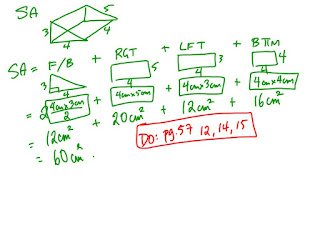 SA
5
3
4
4
SA = F/B + RGT + LFT + BTM
3
4
5
4
3
4
4
4
= 2 4cm x 3cm / 2 + 4cm x 5cm + 4cm x 3cm + 4cm x 4cm
= 12cm² + 20cm² + 12cm² + 16cm²
= 60cm².
DO: pg. 57 12, 14, 15